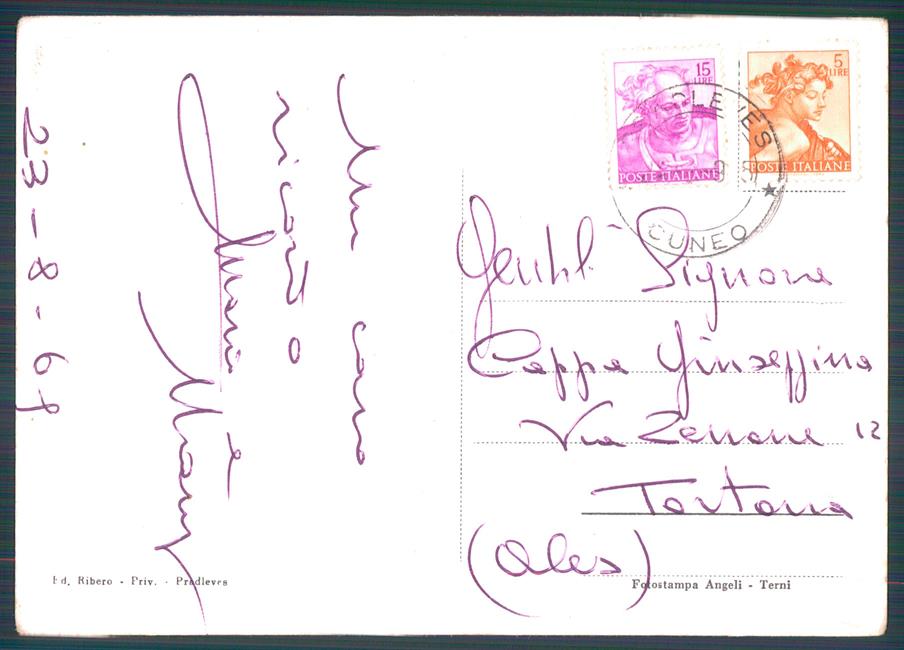 Un caro
ricordo
Maria e
23-8-61
15
LIRE
POSTE ITALIANE
5
LIRE
POSTE ITALIANE
CUNEO
Gentil. Signora
Cappa Giuseppina
Via Zenone 12
Tortona
(Ales)
Ed. Ribero - Priv. - Pradleves
Fotostampa Angeli - Terni